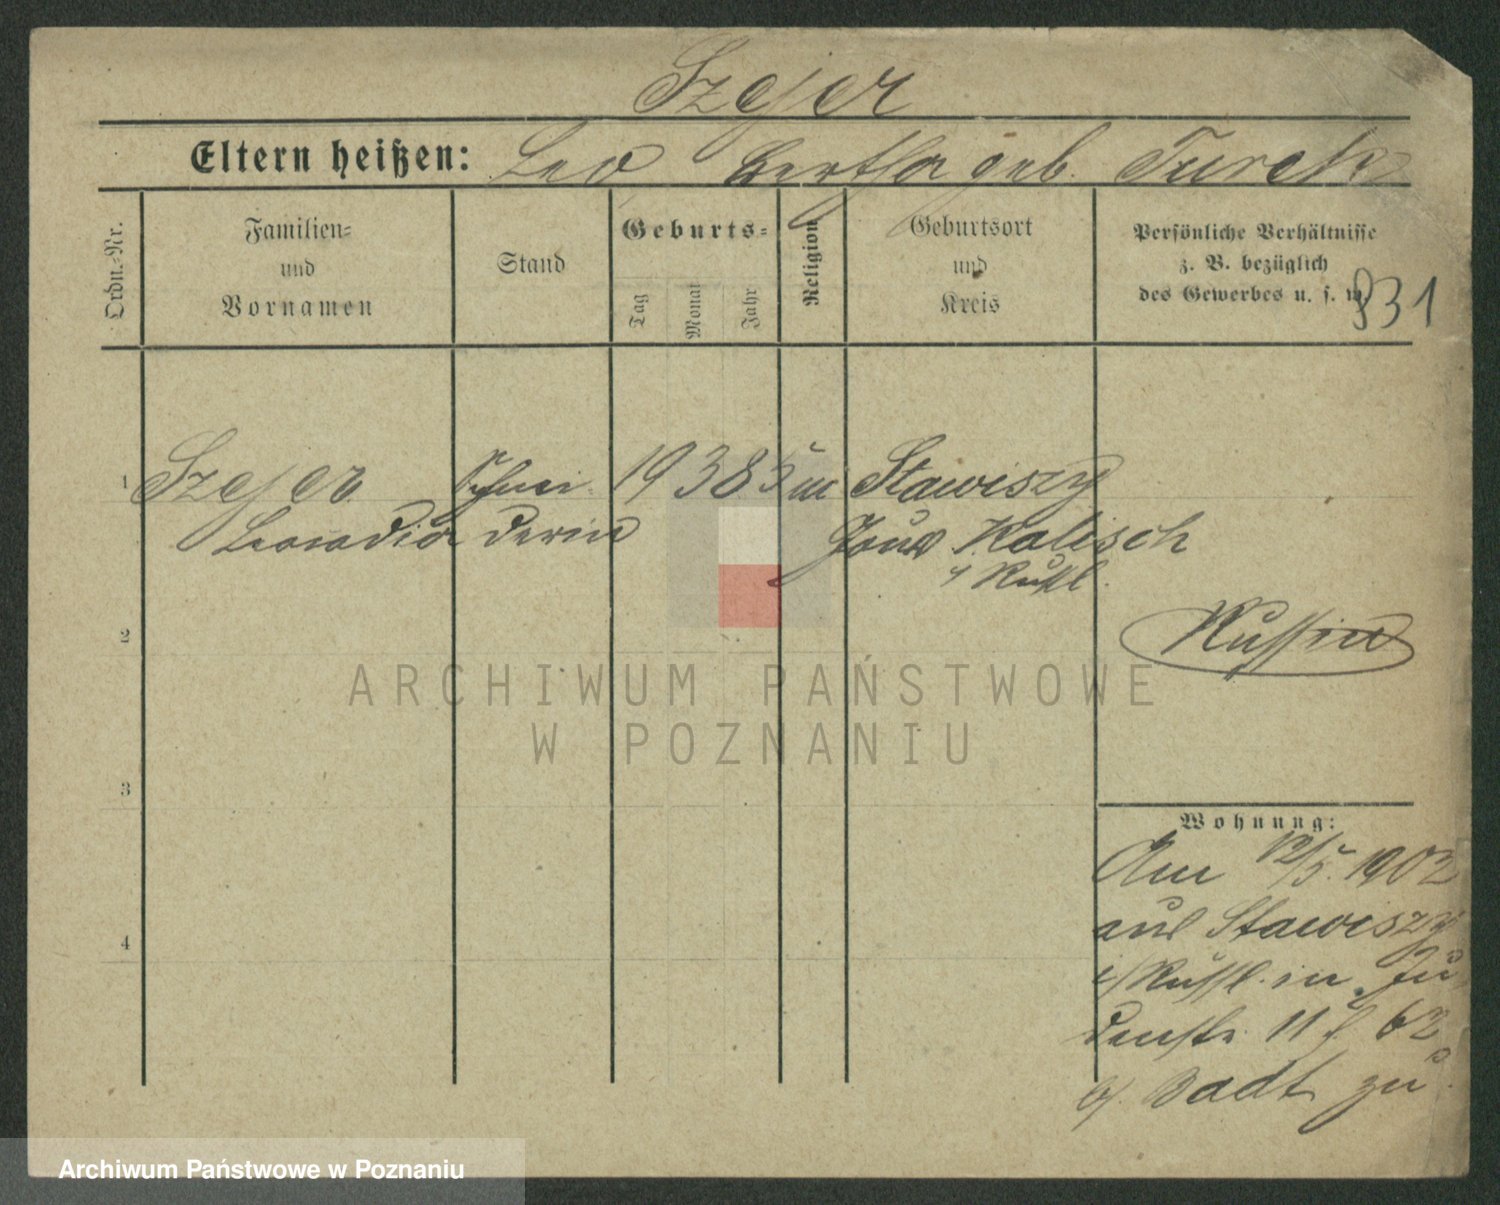 Szejer
Eltern heißen: Leo Bertha geb. Turek
Ordn.-Nr.
Familien-
und
Vornamen
Stand
Geburts-
Tag
Monat
Jahr
Religion
Geburtsort
und
Kreis
Persönliche Verhältnisse
z. B. bezüglich
des Gewerbes u. s. w.
931
1 Szejer Schnei 19 3 85 m Stawiszyn
Leocadia derin Gouv Kalisch
i/ Rußl.
2
Russin
3
Wohnung:
Am 12/5. 1902
aus Stawiszyn
i/Russl. in Ju
4
denstr. 11 f 62
b/ Badt zu
ARCHIWUM PAŃSTWOWE
W POZNANIU
Archiwum Państwowe w Poznaniu